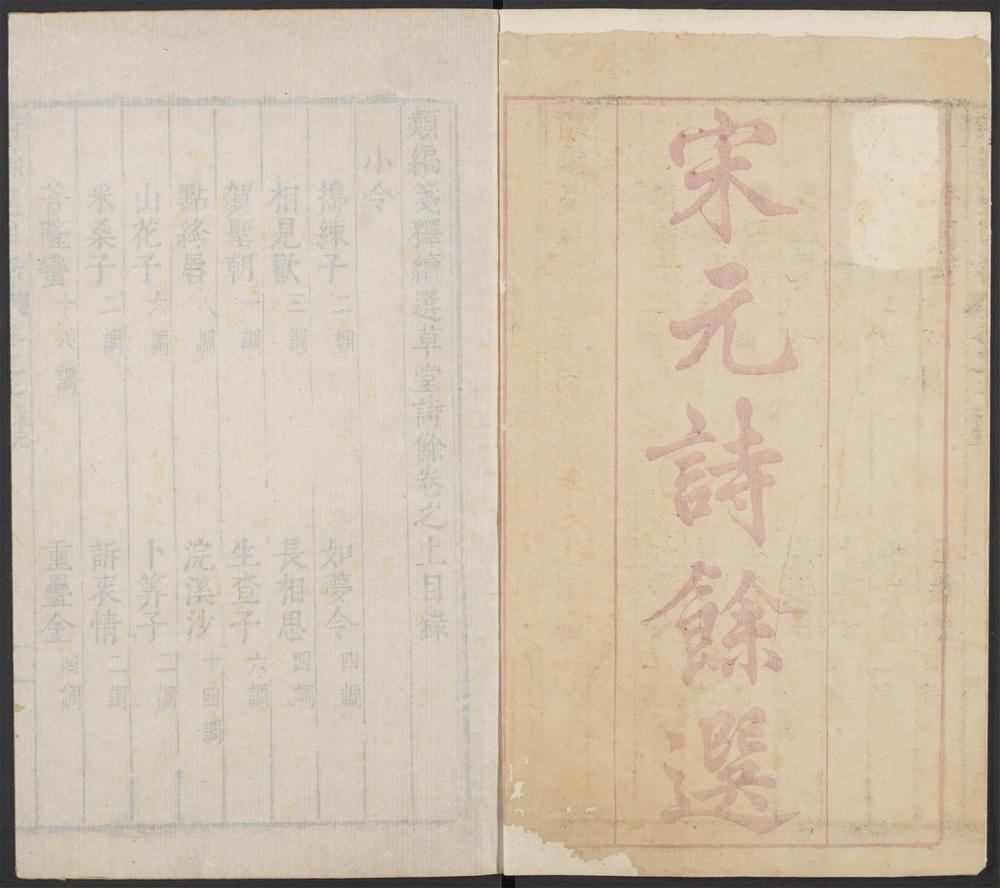 宋元詩餘選
類編箋釋續選草堂詩餘卷之上目錄
小令
搗練子二調 如夢令四調
相見歡三調 長相思四調
賀聖朝一調 生查子六調
點絳唇八調 浣溪沙十四調
山花子六調 卜筭子二調
釆桑子二調 訴衷情二調
菩薩蠻十八調 重疊金四調